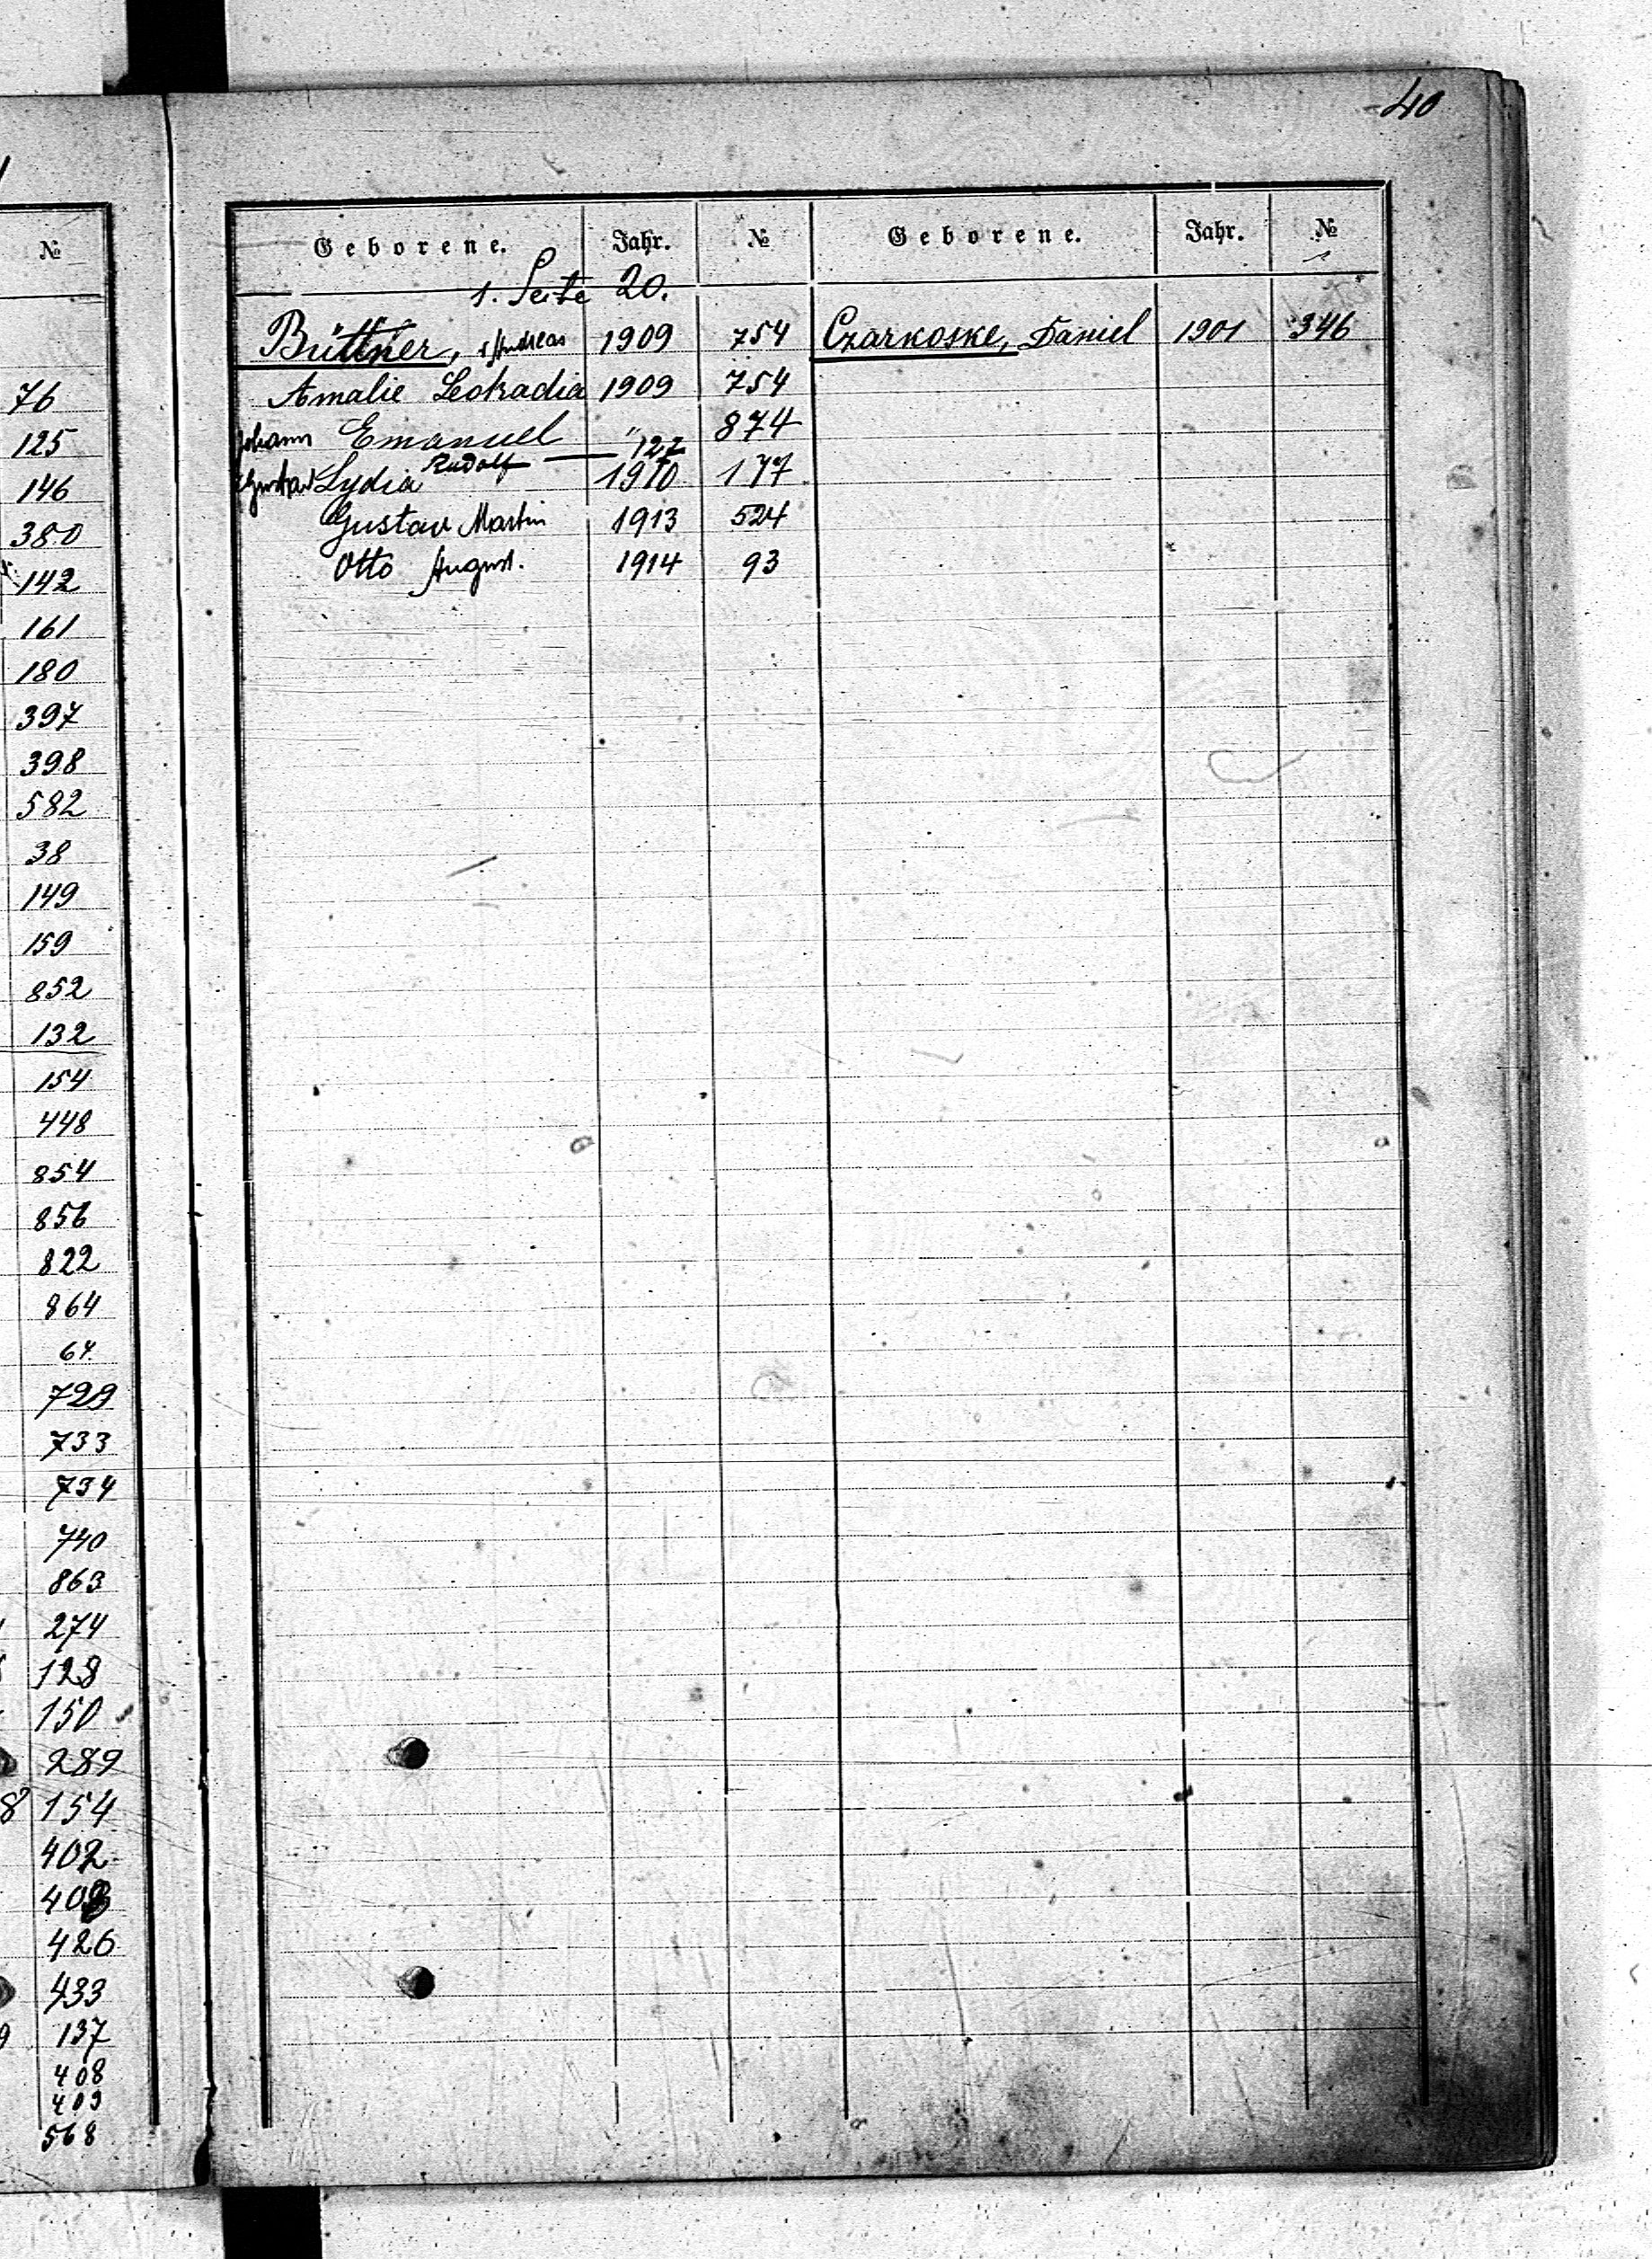 40
№
76
125
146
380
142
161
180
397
398
582
38
149
159
852
132
154
448
854
856
822
864
64
729
733
734
740
863
274
128
150
289
8 154
402
403
426
433
9 137
408
409
568
Geborene. Jahr. № Geborene. Jahr. №
1. Seite 20.
Büttner, Andreas 1909 754 Czarkoske, Daniel 1901 346
Amalie Leokadia 1909 754
Johann Emanuel " 874
Gustav Rudolf — 127
Lydia 1910 177
Gustav Martin 1913 524
Otto August. 1914 93